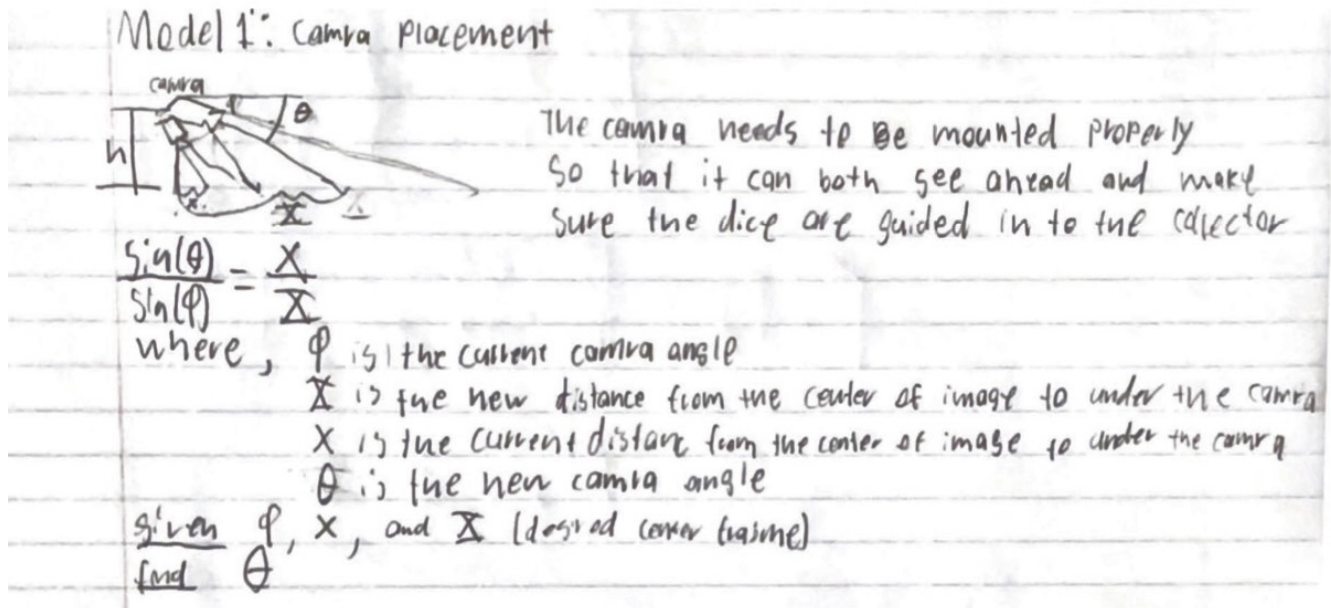 Model 1: Camra Placement
camra
θ
h
X
The camra needs to be mounted properly
So that it can both see ahead and make
sure the dice are guided in to the colector
sin(θ)/sin(φ) = x/X̲
where, φ is the current camra angle
X̲ is the new distance from the center of image to under the camra
X is the current distanc from the center of image to under the camra
θ is the new camra angle
given φ, x, and X̲ (desired center
find θ